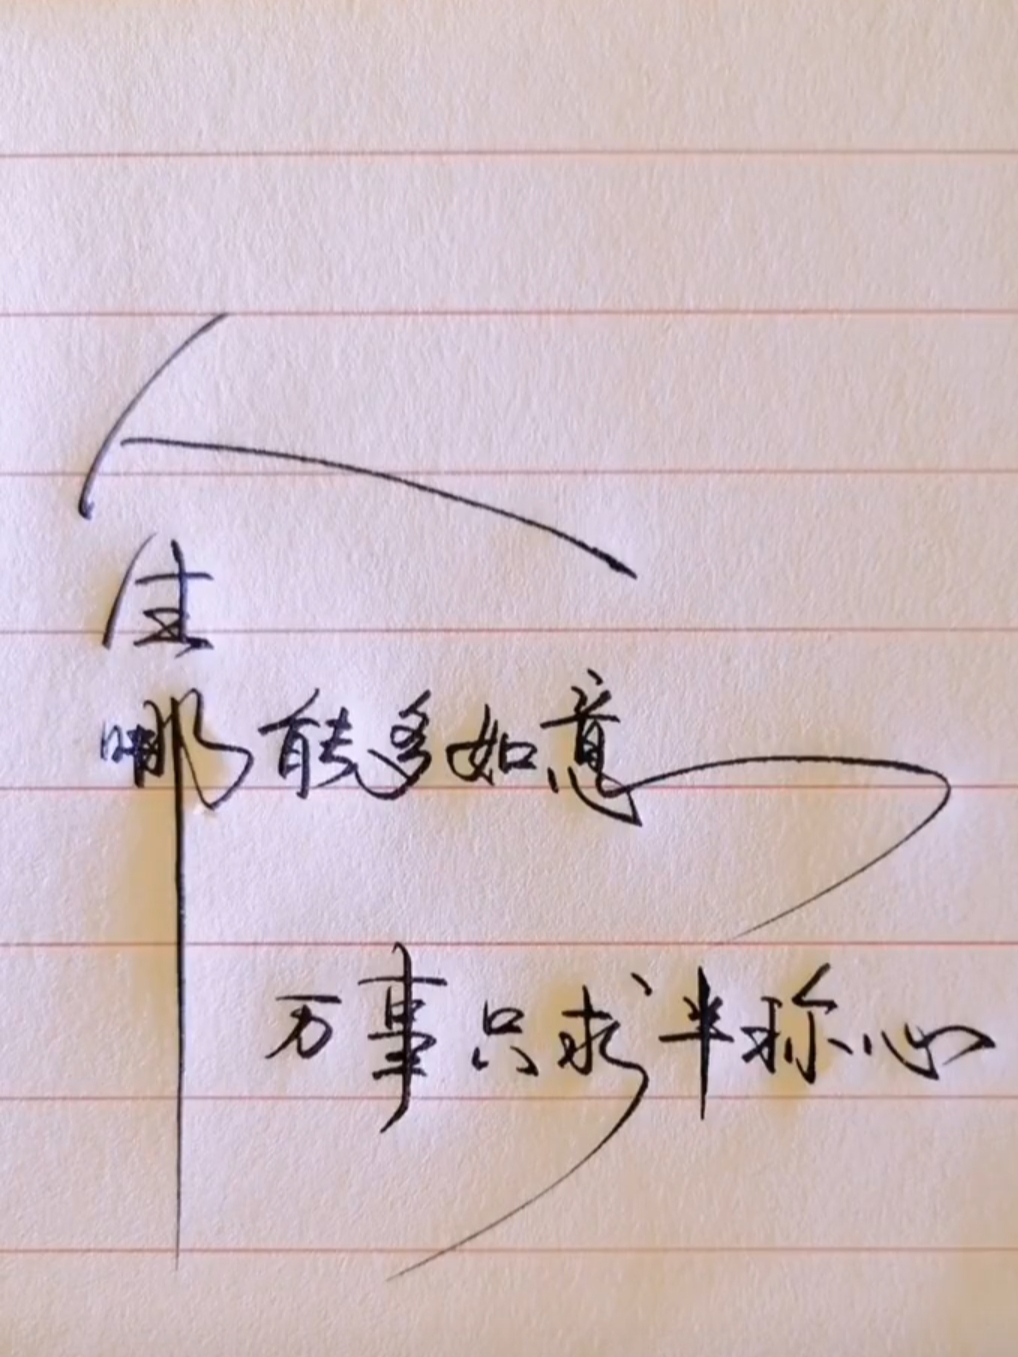 人
生
哪能多如意
万事只求半称心